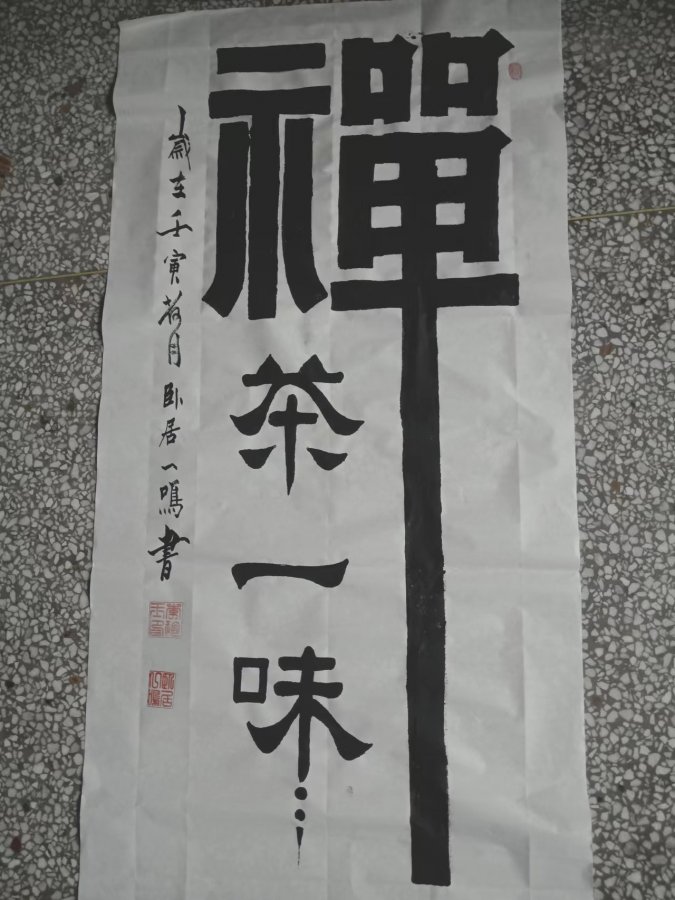 禪
茶一味
歲在壬寅荷月卧居一鳴書